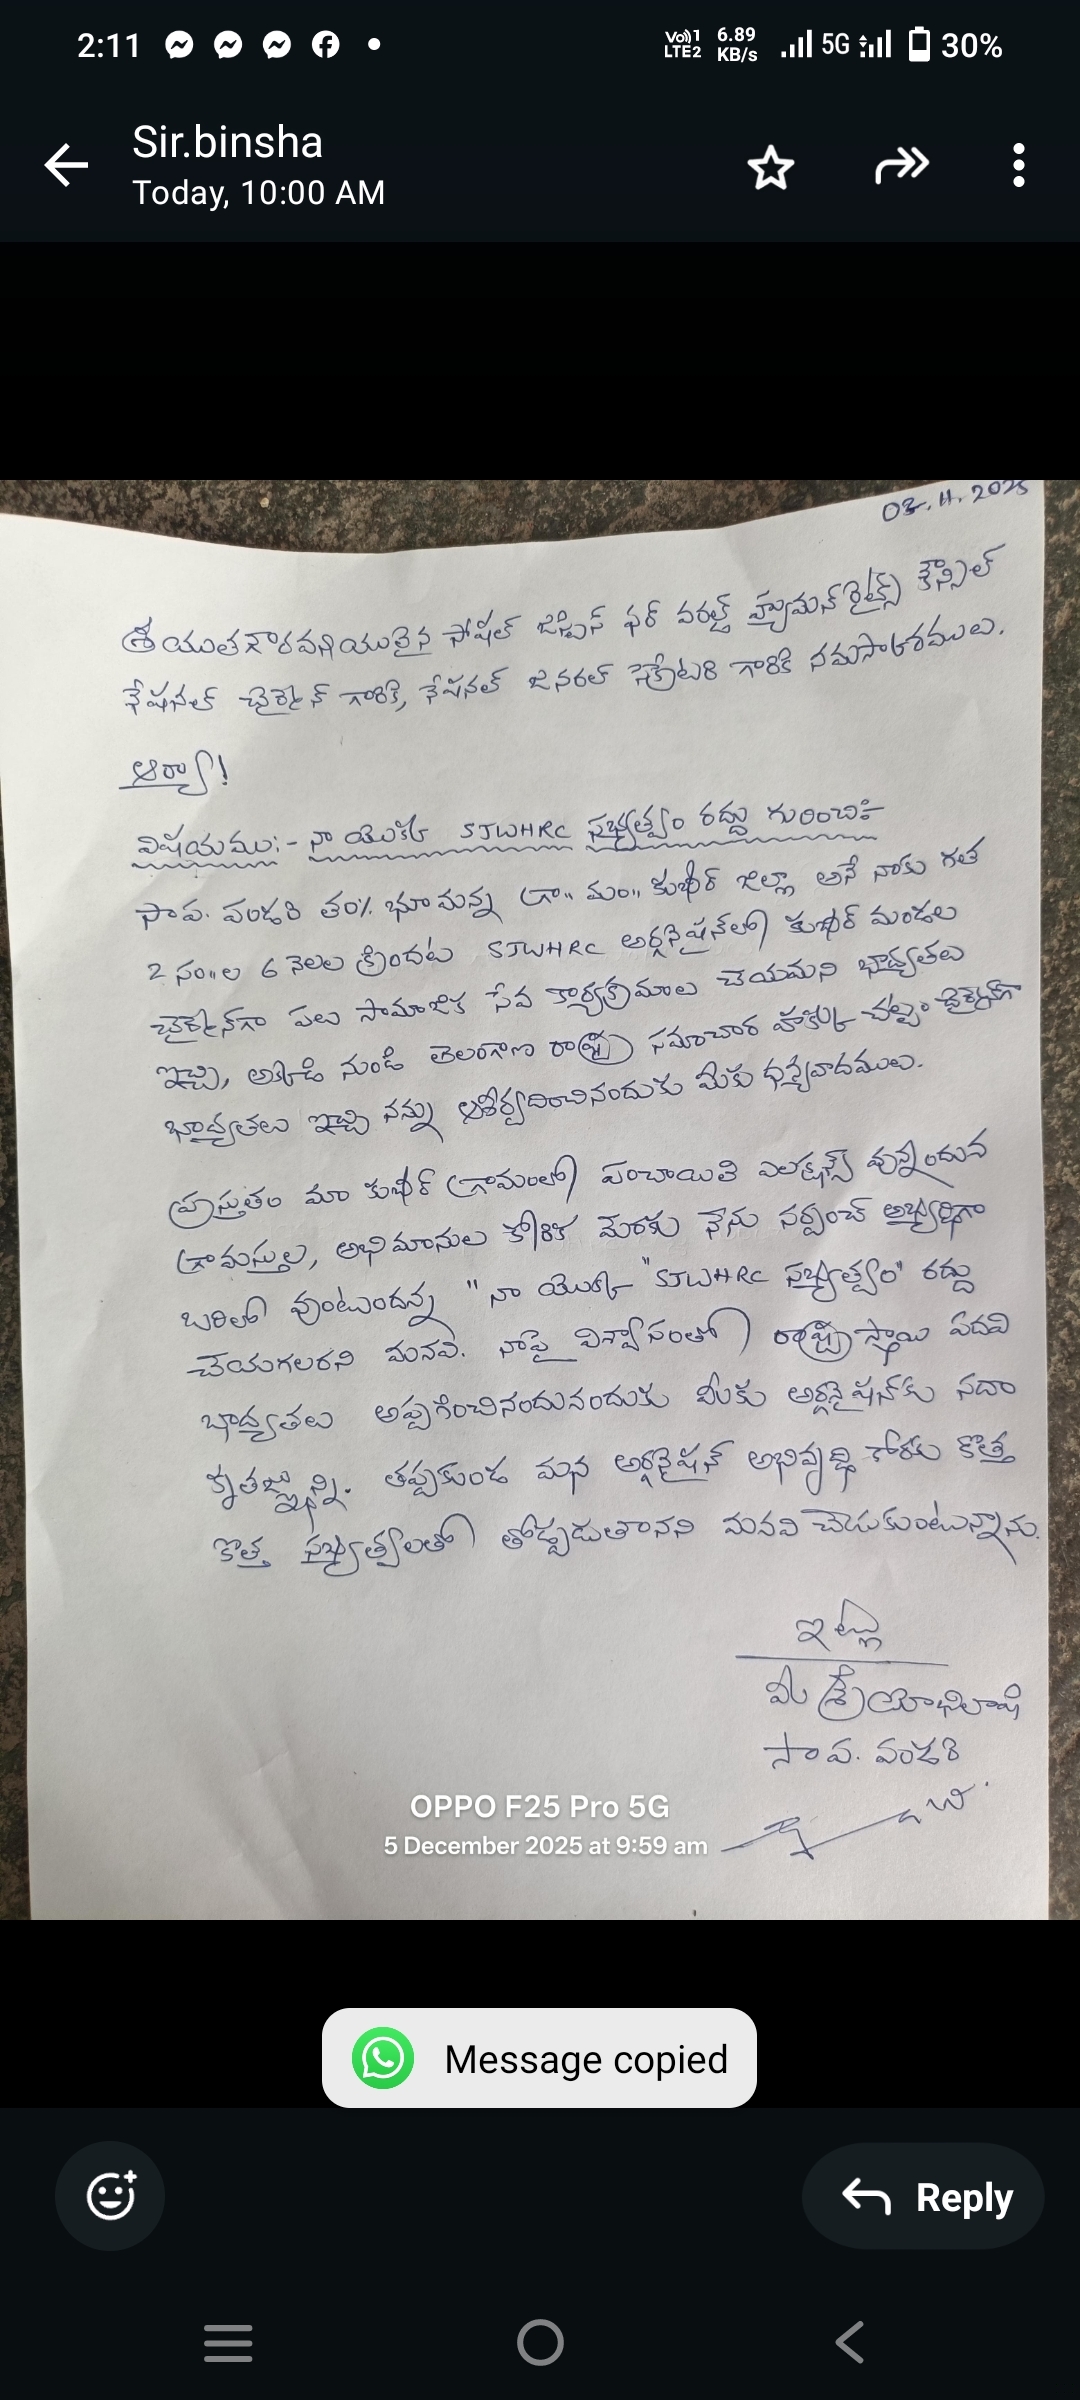 2:11
Vo)) 1 LTE2 6.89 KB/s 5G 30%
Sir.binsha
Today, 10:00 AM
03.11.2025
శ్రీయుత గౌరవనియులైన సోషల్ జస్టిస్ ఫర్ వరల్డ్ హ్యుమన్ రైట్స్ కౌన్సిల్
నేషనల్ చైర్మెన్ గారికి, నేషనల్ జనరల్ సెక్రేటరి గారికి నమసాకారములు.
ఆర్యా!
విషయము:- నా యొక్క SJWHRC సభ్యత్వం రద్దు గురించి:-
సాప. పండరి తం% భూమన్న గ్రా" మం" కుభీర్ జిల్లా అనే నాకు గత
2 సం"ల 6 నెలల క్రిందట SJWHRC అర్గనైషన్‌లో కుభీర్ మండల
చైర్మెన్‌గా పలు సామాజిక సేవ కార్యక్రమాలు చేయమని భాద్యతలు
ఇచ్చి, అక్కడి నుండి తెలంగాణ రాష్ట్ర సమాచార హక్కు చట్టం చైర్మెన్‌గా
భాద్యతలు ఇచ్చి నన్ను ఆశీర్వదించినందుకు మీకు ధన్యవాదములు.
ప్రస్తుతం మా కుభీర్ గ్రామంలో పంచాయితి ఎలక్షన్స్ వున్నందున
గ్రామస్తుల, అభిమానుల కోరిక మేరకు నేను సర్పంచ్ అభ్యర్థిగా
బరిలో వుంటుందన్న "నా యొక్క "SJWHRC సభ్యత్వం" రద్దు
చేయగలరని మనవి. నాపై విశ్వాసంతో రాష్ట్ర స్థాయి పదవి
భాద్యతలు అప్పగించినందునందుకు మీకు అర్గనైషన్‌కు సదా
కృతజ్ఞున్ని. తప్పకుండ మన అర్గనైషన్ అభివృద్ధి కోరకు కొత్త
కొత్త సభ్యత్వాలతో తోడ్పడుతానని మనవి చేసుకుంటున్నాను.
ఇట్లు
మీ శ్రేయోభిలాషి
సాప. పండరి
OPPO F25 Pro 5G
5 December 2025 at 9:59 am
Message copied
Reply